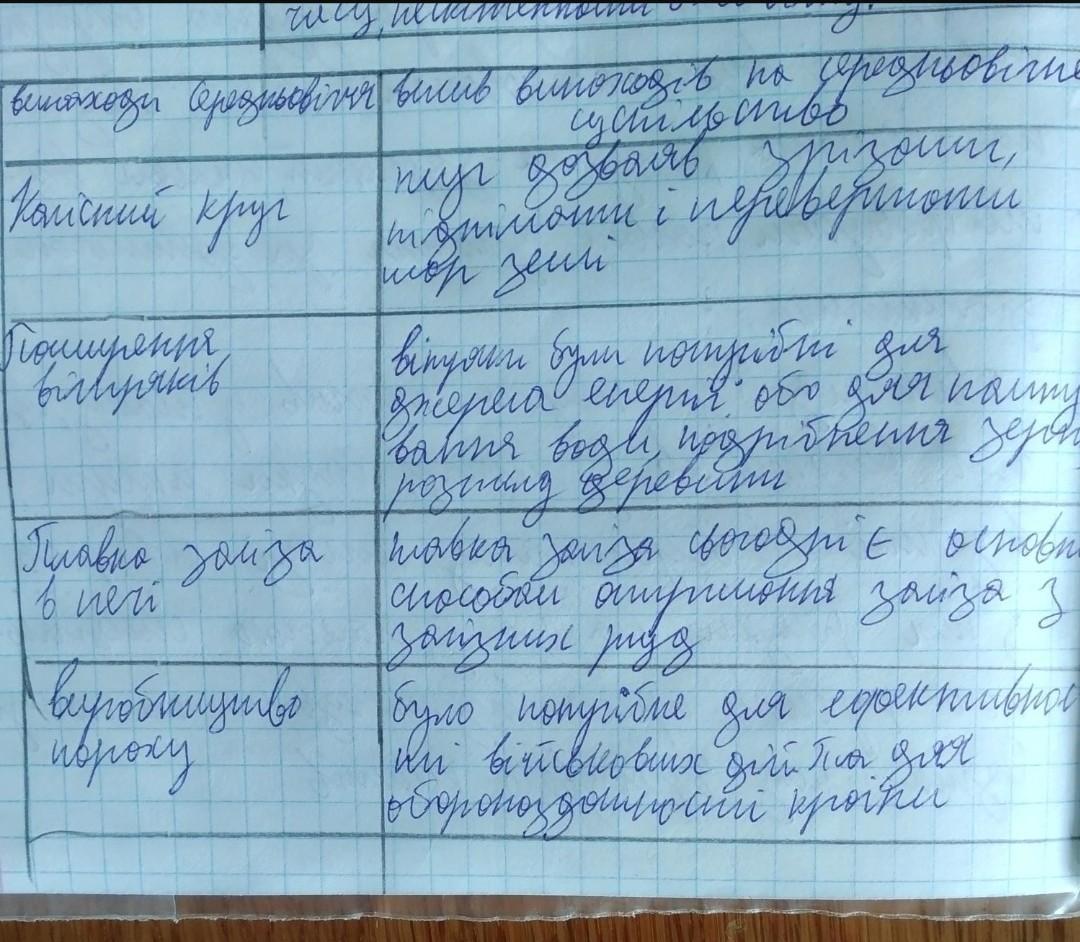 часу,
винаходи Середньовіччя
вплив винаходів на середньовічне
суспільство
Колісний круг
плуг дозволяв зрізати,
піднімати і перевертати
шар землі
Поширення
вітряків
вітряки були потрібні для
джерела енергії або для пошту
вання води, подрібнення зерн
розпилу деревини
Плавка заліза
в печі
плавка заліза сьогодні є основн
способом отримання заліза з
залізних руд
виробництво
пороху
було потрібне для ефективнос
ті військових дій та для
обороноздатності країни